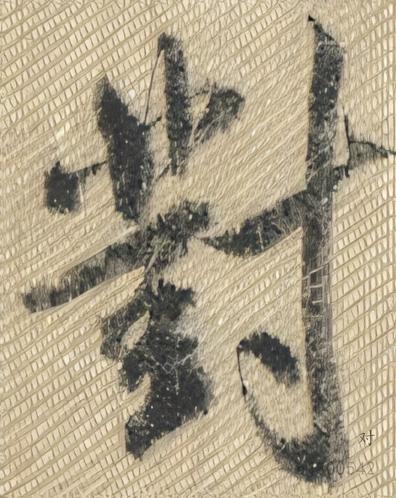 對
对
00542